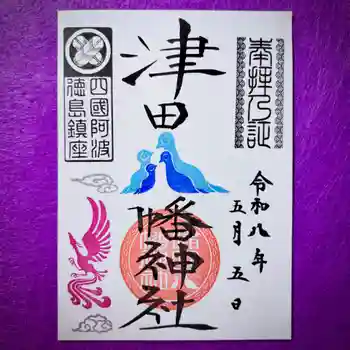 奉拝乃証
令和八年
五月五日
津田
幡神社
四國阿波
徳島鎮座